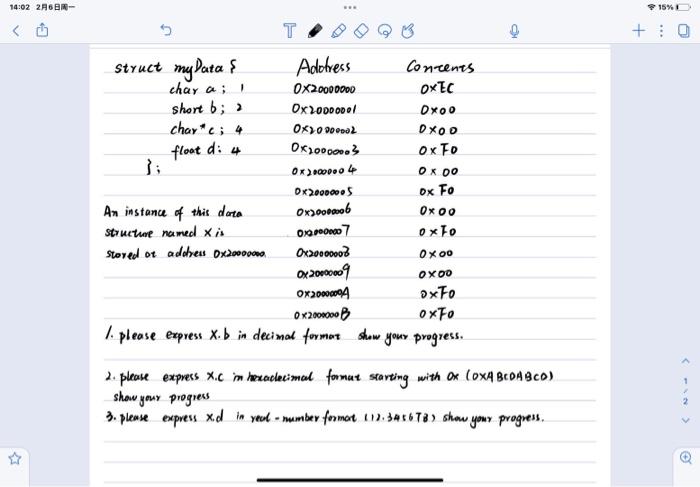 14:02 2月6日周一
15%
struct myData {
char a; 1
short b; 2
char*c; 4
float d; 4
};
An instance of this data
structure named x is
stored at address 0x20000000.
Address Contents
0x20000000 0xEC
0x20000001 0x00
0x20000002 0x00
0x20000003 0xF0
0x20000004 0x00
0x20000005 0xF0
0x20000006 0x00
0x20000007 0xF0
0x20000008 0x00
0x20000009 0x00
0x2000000A 0xF0
0x2000000B 0xF0
1. please express X.b in decimal format show your progress.
2. please express X.c in hexadecimal format starting with 0x (0xABCDABCD)
show your progress
3. please express x.d in real-number format (12.345678) show your progress.
1
2